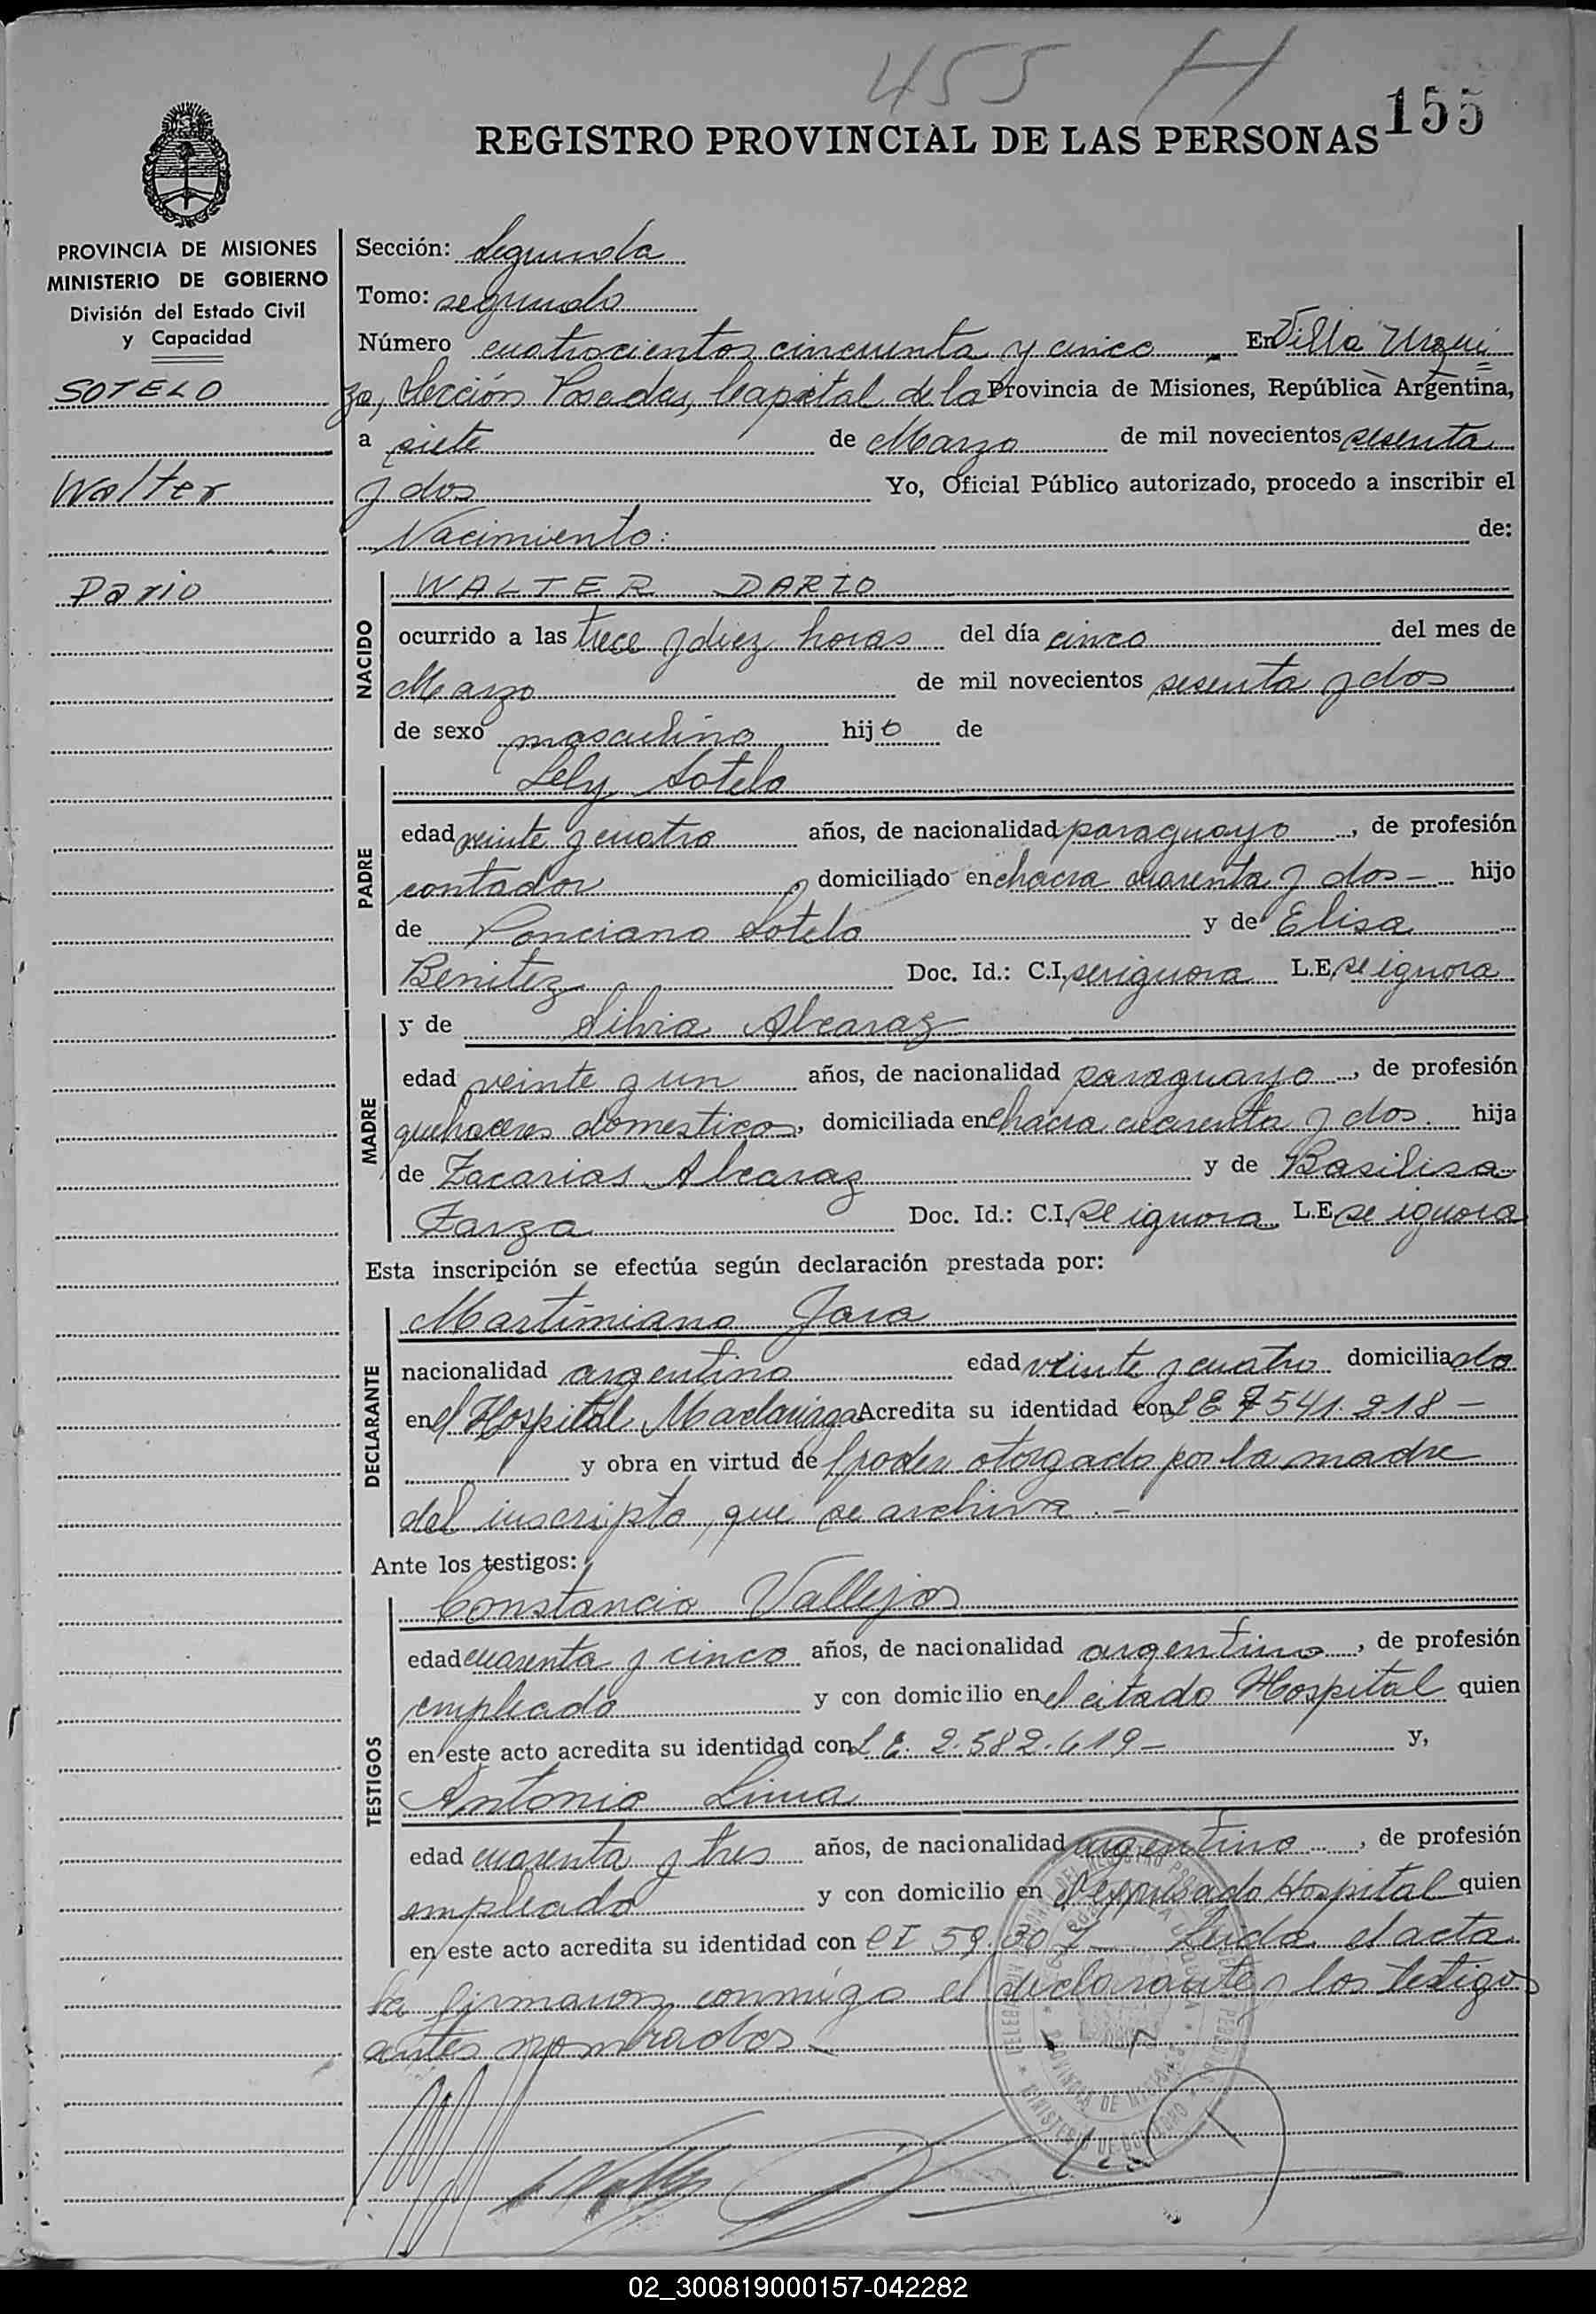 455 H
155
REGISTRO PROVINCIAL DE LAS PERSONAS
PROVINCIA DE MISIONES
MINISTERIO DE GOBIERNO
División del Estado Civil
y Capacidad
SOTELO
Walter
Dario
Sección: Segunda
Tomo: segundo
Número cuatrocientos cincuenta y cinco En Villa Urqui=
za, Sección Posadas, Capital de la Provincia de Misiones, República Argentina,
a siete de Marzo de mil novecientos sesenta
y dos Yo, Oficial Público autorizado, procedo a inscribir el
Nacimiento: de:
NACIDO
WALTER DARIO
ocurrido a las trece y diez horas del día cinco del mes de
Marzo de mil novecientos sesenta y dos
de sexo masculino hijo de
PADRE
Lely Sotelo
edad veinte y cuatro años, de nacionalidad paraguayo, de profesión
contador domiciliado en chacra cuarenta y dos - hijo
de Ponciano Sotelo y de Elisa
Benitez Doc. Id.: C.I. se ignora L.E. se ignora
MADRE
y de Silvia Alcaraz
edad veinte y un años, de nacionalidad paraguayo, de profesión
quehaceres domesticos, domiciliada en chacra cuarenta y dos. hija
de Zacarias Alcaraz y de Basilisa
Zarza Doc. Id.: C.I. se ignora L.E. se ignora
Esta inscripción se efectúa según declaración prestada por:
DECLARANTE
Martimiano Jara
nacionalidad argentino edad veinte y cuatro domiciliado
en el Hospital Madariaga Acredita su identidad con LE 7541.218 -
y obra en virtud del poder otorgado por la madre
del inscripto, que se archiva.-
Ante los testigos:
TESTIGOS
Constancio Vallejos
edad cuarenta y cinco años, de nacionalidad argentino, de profesión
empleado y con domicilio en el citado Hospital quien
en este acto acredita su identidad con L E. 2.582.619 - y,
Antonio Lima
edad cuarenta y tres años, de nacionalidad argentino, de profesión
empleado y con domicilio en el expresado Hospital quien
en este acto acredita su identidad con CI 59.307 - Leida el acta
la firmaron conmigo el declarante y los testigos
antes nombrados -
02_300819000157-042282